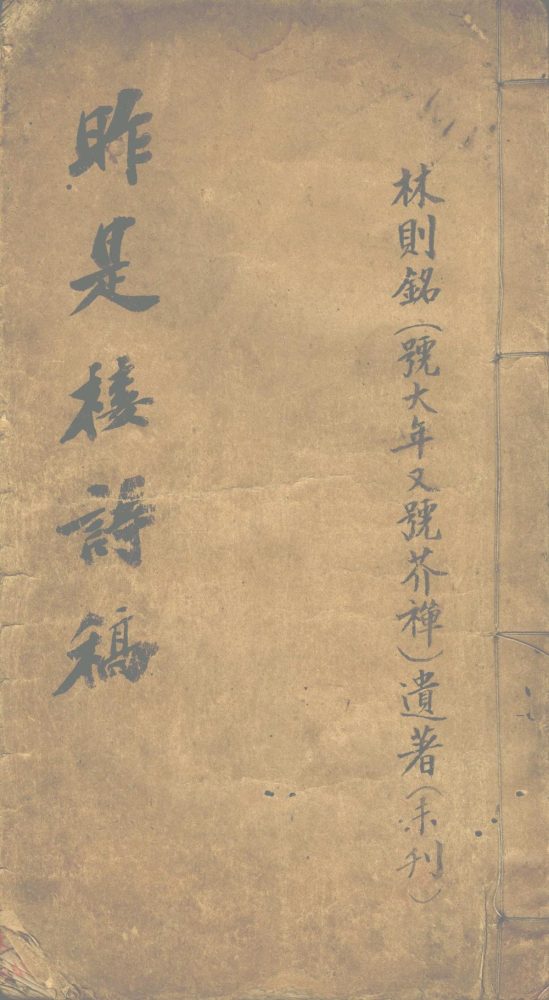 林則銘(號大年又號芥禪)遺著(未刊)
昨是樓詩稿